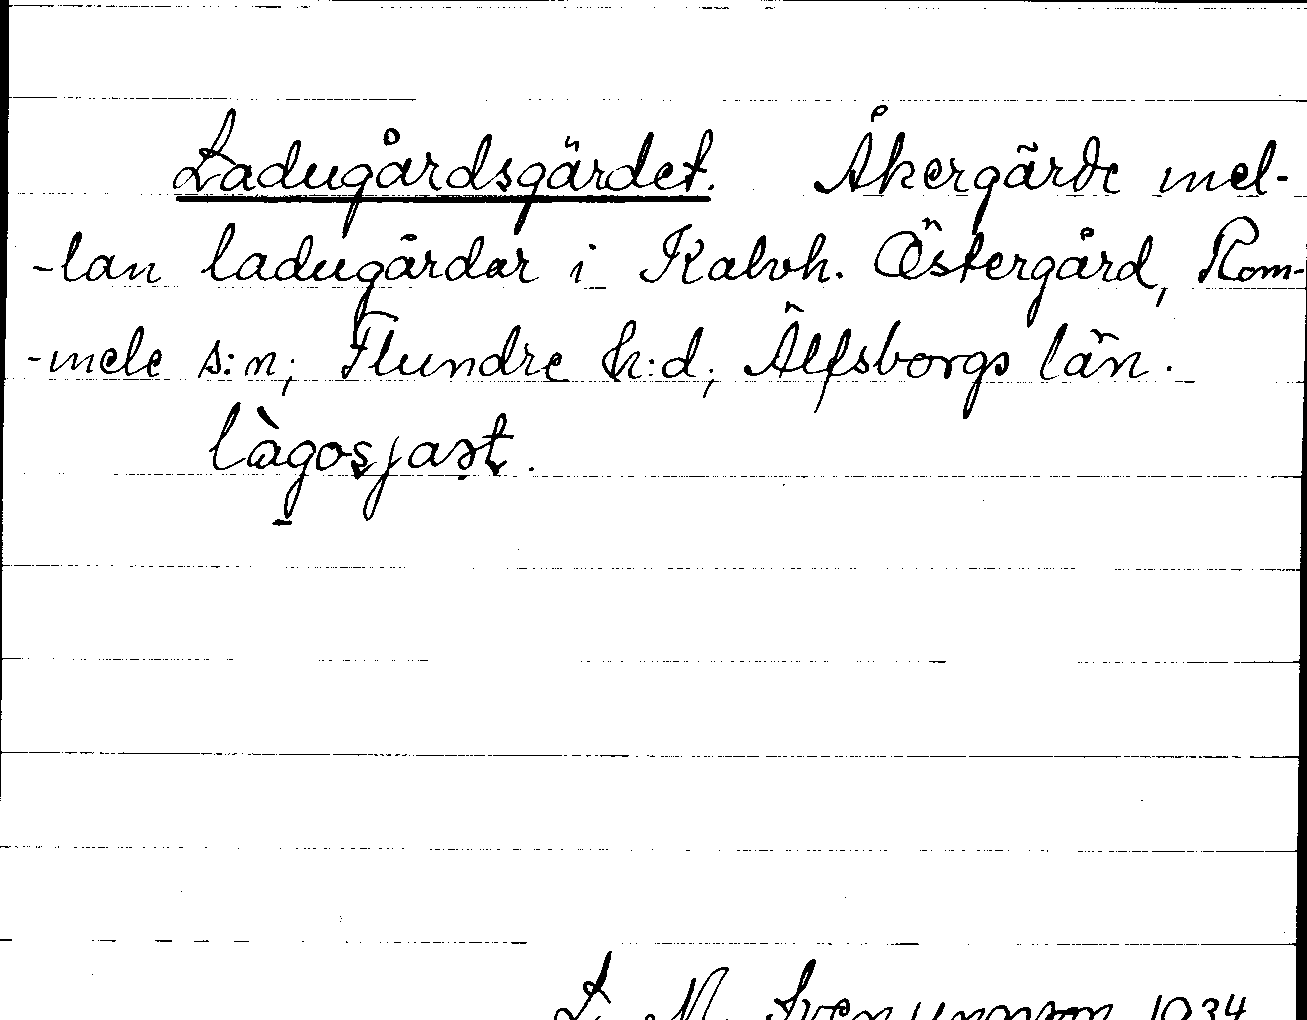 Ladugårdsgärdet. Åkergärde mel-
-lan ladugårdar i Kalvh. Östergård, Rom-
-mele s:n; Flundre h:d; Älfsborgs län.
làgosjast.
L. M. Svenungsson 1934